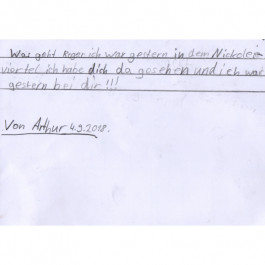 Was geht Roger ich war gestern in dem Nickolei
viertel ich habe dich da gesehen und ich war
gestern bei dir!!!
Von Arthur 4.9.2018.